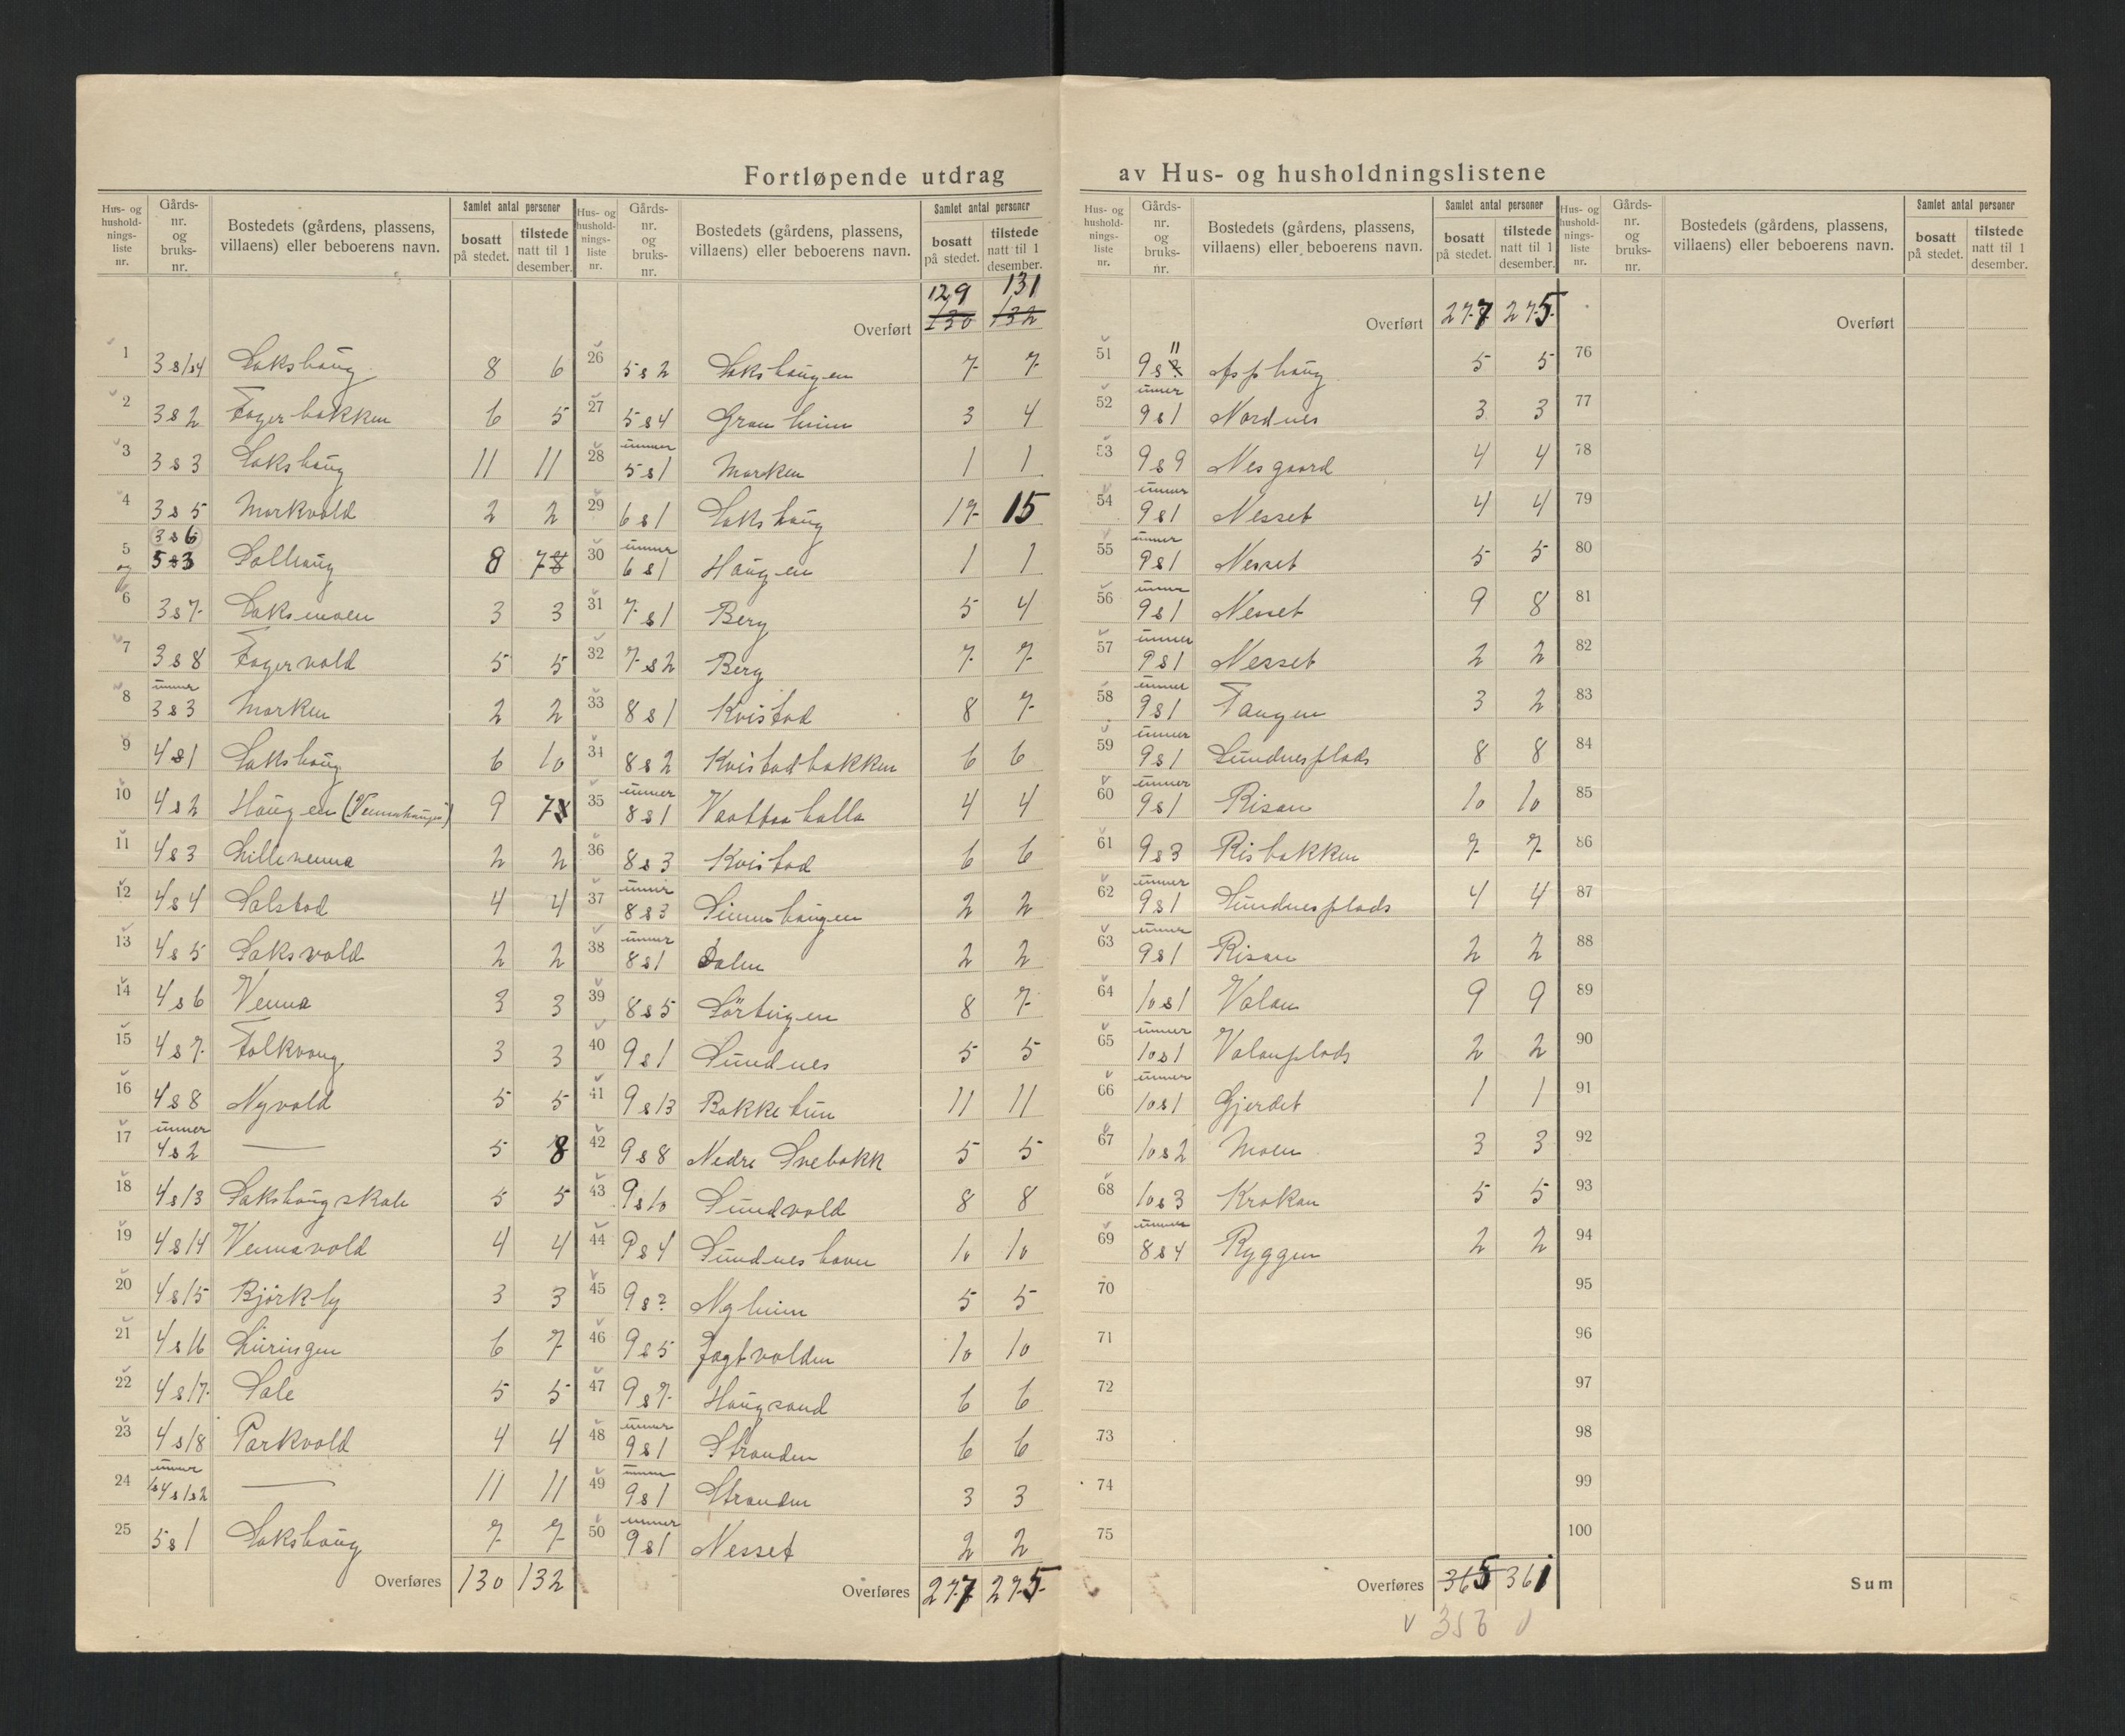 Fortløpende utdrag av Hus- og husholdningslistene
Hus- og hushold- nings- liste nr. | Gårds- nr. og bruks- nr. | Bostedets (gårdens, plassens, villaens) eller beboerens navn. | Samlet antal personer | bosatt på stedet. | tilstede natt til 1 desember.
1 3 s 1/14 Sakshaug 8 6
2 3 s 2 Fagerbakken 6 5
3 3 s 3 Sakshaug 11 11
4 3 s 5 Markvold 2 2
5 og 3 s 6 5 s 3 Solhaug 8 7 8
6 3 s 7 Saksmoen 3 3
7 3 s 8 Fagervold 5 5
8 unner 3 s 3 Marken 2 2
9 4 s 1 Sakshaug 6 10
10 4 s 2 Haugen (Vennahaugen) 9 7
11 4 s 3 Lillevenna 2 2
12 4 s 4 Salstad 4 4
13 4 s 5 Saksvold 2 2
14 4 s 6 Venna 3 3
15 4 s 7 Folkvang 3 3
16 4 s 8 Nyvold 5 5
17 unner 4 s 2 — 5 8
18 4 s 13 Sakshaug skole 5 5
19 4 s 14 Vennavold 4 4
20 4 s 15 Bjørkly 3 3
21 4 s 16 Luringen 6 7
22 4 s 17 Sale 5 5
23 4 s 18 Parkvold 4 4
24 unner 4 s 1 s 2 — 11 11
25 5 s 1 Sakshaug 7 7
Overføres 130 132
Hus- og hushold- nings- liste nr. | Gårds- nr. og bruks- nr. | Bostedets (gårdens, plassens, villaens) eller beboerens navn. | Samlet antal personer | bosatt på stedet. | tilstede natt til 1 desember.
129 131
Overført 130 132
26 5 s 2 Sakshaugen 7 7
27 5 s 4 Granheim 3 4
28 unner 5 s 1 Marken 1 1
29 6 s 1 Sakshaug 17 15
30 unner 6 s 1 Haugen 1 1
31 7 s 1 Berg 5 4
32 7 s 2 Berg 7 7
33 8 s 1 Kvistad 8 7
34 8 s 2 Kvistadbakken 6 6
35 unner 8 s 1 Vaattabakka 4 4
36 8 s 3 Kvistad 6 6
37 unner 8 s 3 Simenhaugen 2 2
38 unner 8 s 1 Dalen 2 2
39 8 s 5 Sörteigen 8 7
40 9 s 1 Sundnes 5 5
41 9 s 13 Bakketun 11 11
42 9 s 8 Nedre Snebakk 5 5
43 9 s 10 Sundvold 8 8
44 9 s 4 Sundneshavn 10 10
45 9 s 2 Nyheim 5 5
46 9 s 5 Jagtvolden 10 10
47 9 s 7 Haugsand 6 6
48 unner 9 s 1 Stranden 6 6
49 unner 9 s 1 Stranden 3 3
50 unner 9 s 1 Nesset 2 2
Overføres 277 275
Hus- og hushold- nings- liste nr. | Gårds- nr. og bruks- nr. | Bostedets (gårdens, plassens, villaens) eller beboerens navn. | Samlet antal personer | bosatt på stedet. | tilstede natt til 1 desember.
Overført 277 275
51 9 s 11 Asphaug 5 5
52 unner 9 s 1 Nordnes 3 3
53 9 s 9 Nesgaard 4 4
54 unner 9 s 1 Nesset 4 4
55 unner 9 s 1 Nesset 5 5
56 unner 9 s 1 Nesset 9 8
57 unner 9 s 1 Nesset 2 2
58 unner 9 s 1 Tangen 3 2
59 unner 9 s 1 Sundnesplads 8 8
60 unner 9 s 1 Risan 10 10
61 9 s 3 Risbakken 7 7
62 unner 9 s 1 Sundnesplads 4 4
63 unner 9 s 1 Risan 2 2
64 10 s 1 Valan 9 9
65 unner 10 s 1 Valanplads 2 2
66 unner 10 s 1 Gjerdet 1 1
67 10 s 2 Moen 3 3
68 10 s 3 Krokan 5 5
69 unner 8 s 4 Ryggen 2 2
70
71
72
73
74
75
Overføres 365 361
v 356
Hus- og hushold- nings- liste nr. | Gårds- nr. og bruks- nr. | Bostedets (gårdens, plassens, villaens) eller beboerens navn. | Samlet antal personer | bosatt på stedet. | tilstede natt til 1 desember.
Overført
76
77
78
79
80
81
82
83
84
85
86
87
88
89
90
91
92
93
94
95
96
97
98
99
100
Sum